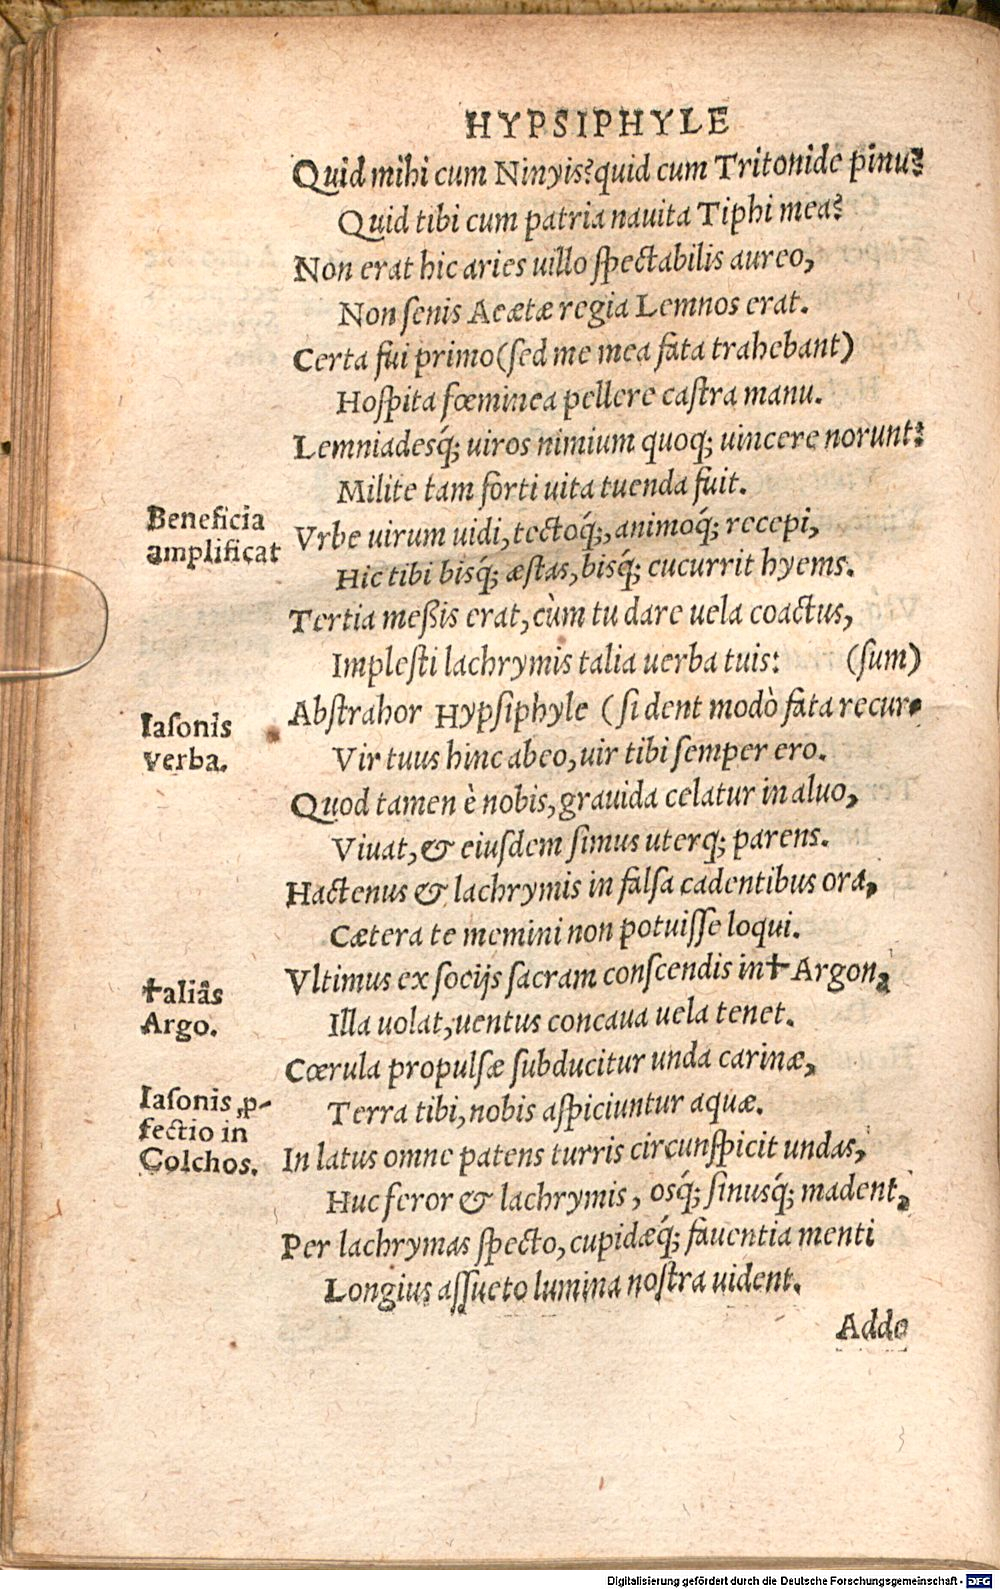 HYPSIPHYLE
Quid mihi cum Ninyis? quid cum Tritonide pinu?
Quid tibi cum patria nauita Tiphi mea?
Non erat hic aries uillo ſpectabilis aureo,
Non ſenis Aeætæ regia Lemnos erat.
Certa fui primo (ſed me mea fata trahebant)
Hoſpita fœminea pellere caſtra manu.
Lemniadesq́; uiros nimium quoq; uincere norunt:
Milite tam forti uita tuenda fuit.
Beneficia
amplificat
Vrbe uirum uidi, tectoq́;, animoq́; recepi,
Hic tibi bisq́; æſtas, bisq́; cucurrit hyems.
Tertia meßis erat, cùm tu dare uela coactus,
Impleſti lachrymis talia uerba tuis: (ſum)
Iaſonis
verba.
Abſtrahor Hypſiphyle (ſi dent modò fata recur-
Vir tuus hinc abeo, uir tibi ſemper ero.
Quod tamen è nobis, grauida celatur in aluo,
Viuat, & eiuſdem ſimus uterq; parens.
Hactenus & lachrymis in falſa cadentibus ora,
Cætera te memini non potuiſſe loqui.
†aliâs
Argo.
Vltimus ex socijs sacram conſcendis in † Argon,
Illa uolat, uentus concaua uela tenet.
Cœrula propulſæ ſubducitur unda carinæ,
Iaſonis ,p-
fectio in
Colchos.
Terra tibi, nobis aſpiciuntur aquæ.
In latus omne patens turris circunſpicit undas,
Huc feror & lachrymis, osq́; ſinusq́; madent,
Per lachrymas ſpecto, cupidæq́; fauentia menti
Longius aſſueto lumina noſtra uident.
Adde
Digitalisierung gefördert durch die Deutsche Forschungsgemeinschaft - DFG